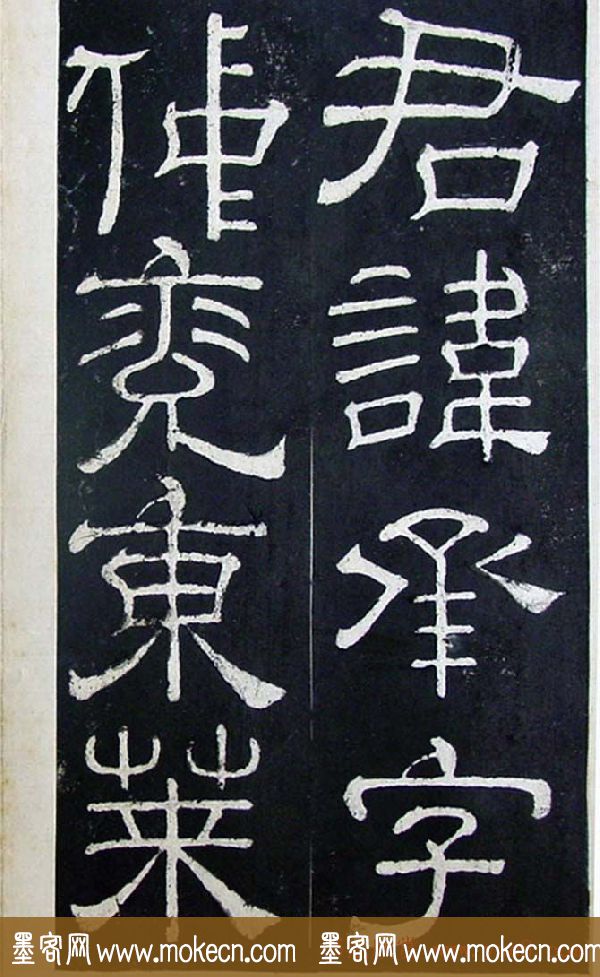 君諱承字
仲兖東萊
墨客网 www.mokecn.com 墨客网 www.mokecn.com